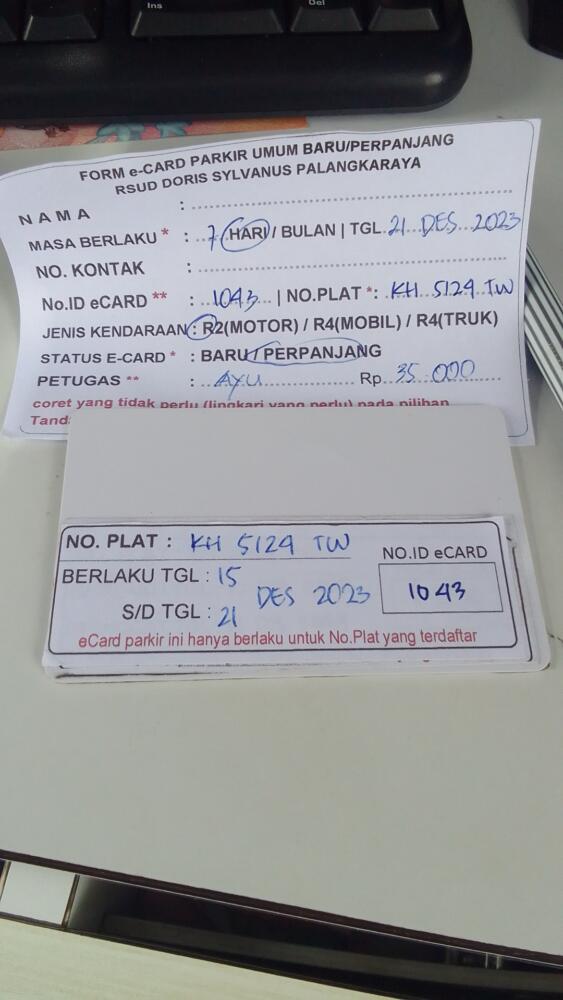 Ins
Del
FORM e-CARD PARKIR UMUM BARU/PERPANJANG
RSUD DORIS SYLVANUS PALANGKARAYA
NAMA :
MASA BERLAKU * : 7 HARI / BULAN | TGL 21 DES 2023
NO. KONTAK :
No.ID eCARD ** : 1043 | NO.PLAT *: KH 5124 TW
JENIS KENDARAAN : R2(MOTOR) / R4(MOBIL) / R4(TRUK)
STATUS E-CARD * : BARU / PERPANJANG
PETUGAS ** : AYU Rp 35.000
coret yang tidak perlu (lingkari yang perlu) pada pilihan
Tand
NO. PLAT : KH 5124 TW
NO.ID eCARD
BERLAKU TGL : 15
DES 2023
1043
S/D TGL : 21
eCard parkir ini hanya berlaku untuk No.Plat yang terdaftar